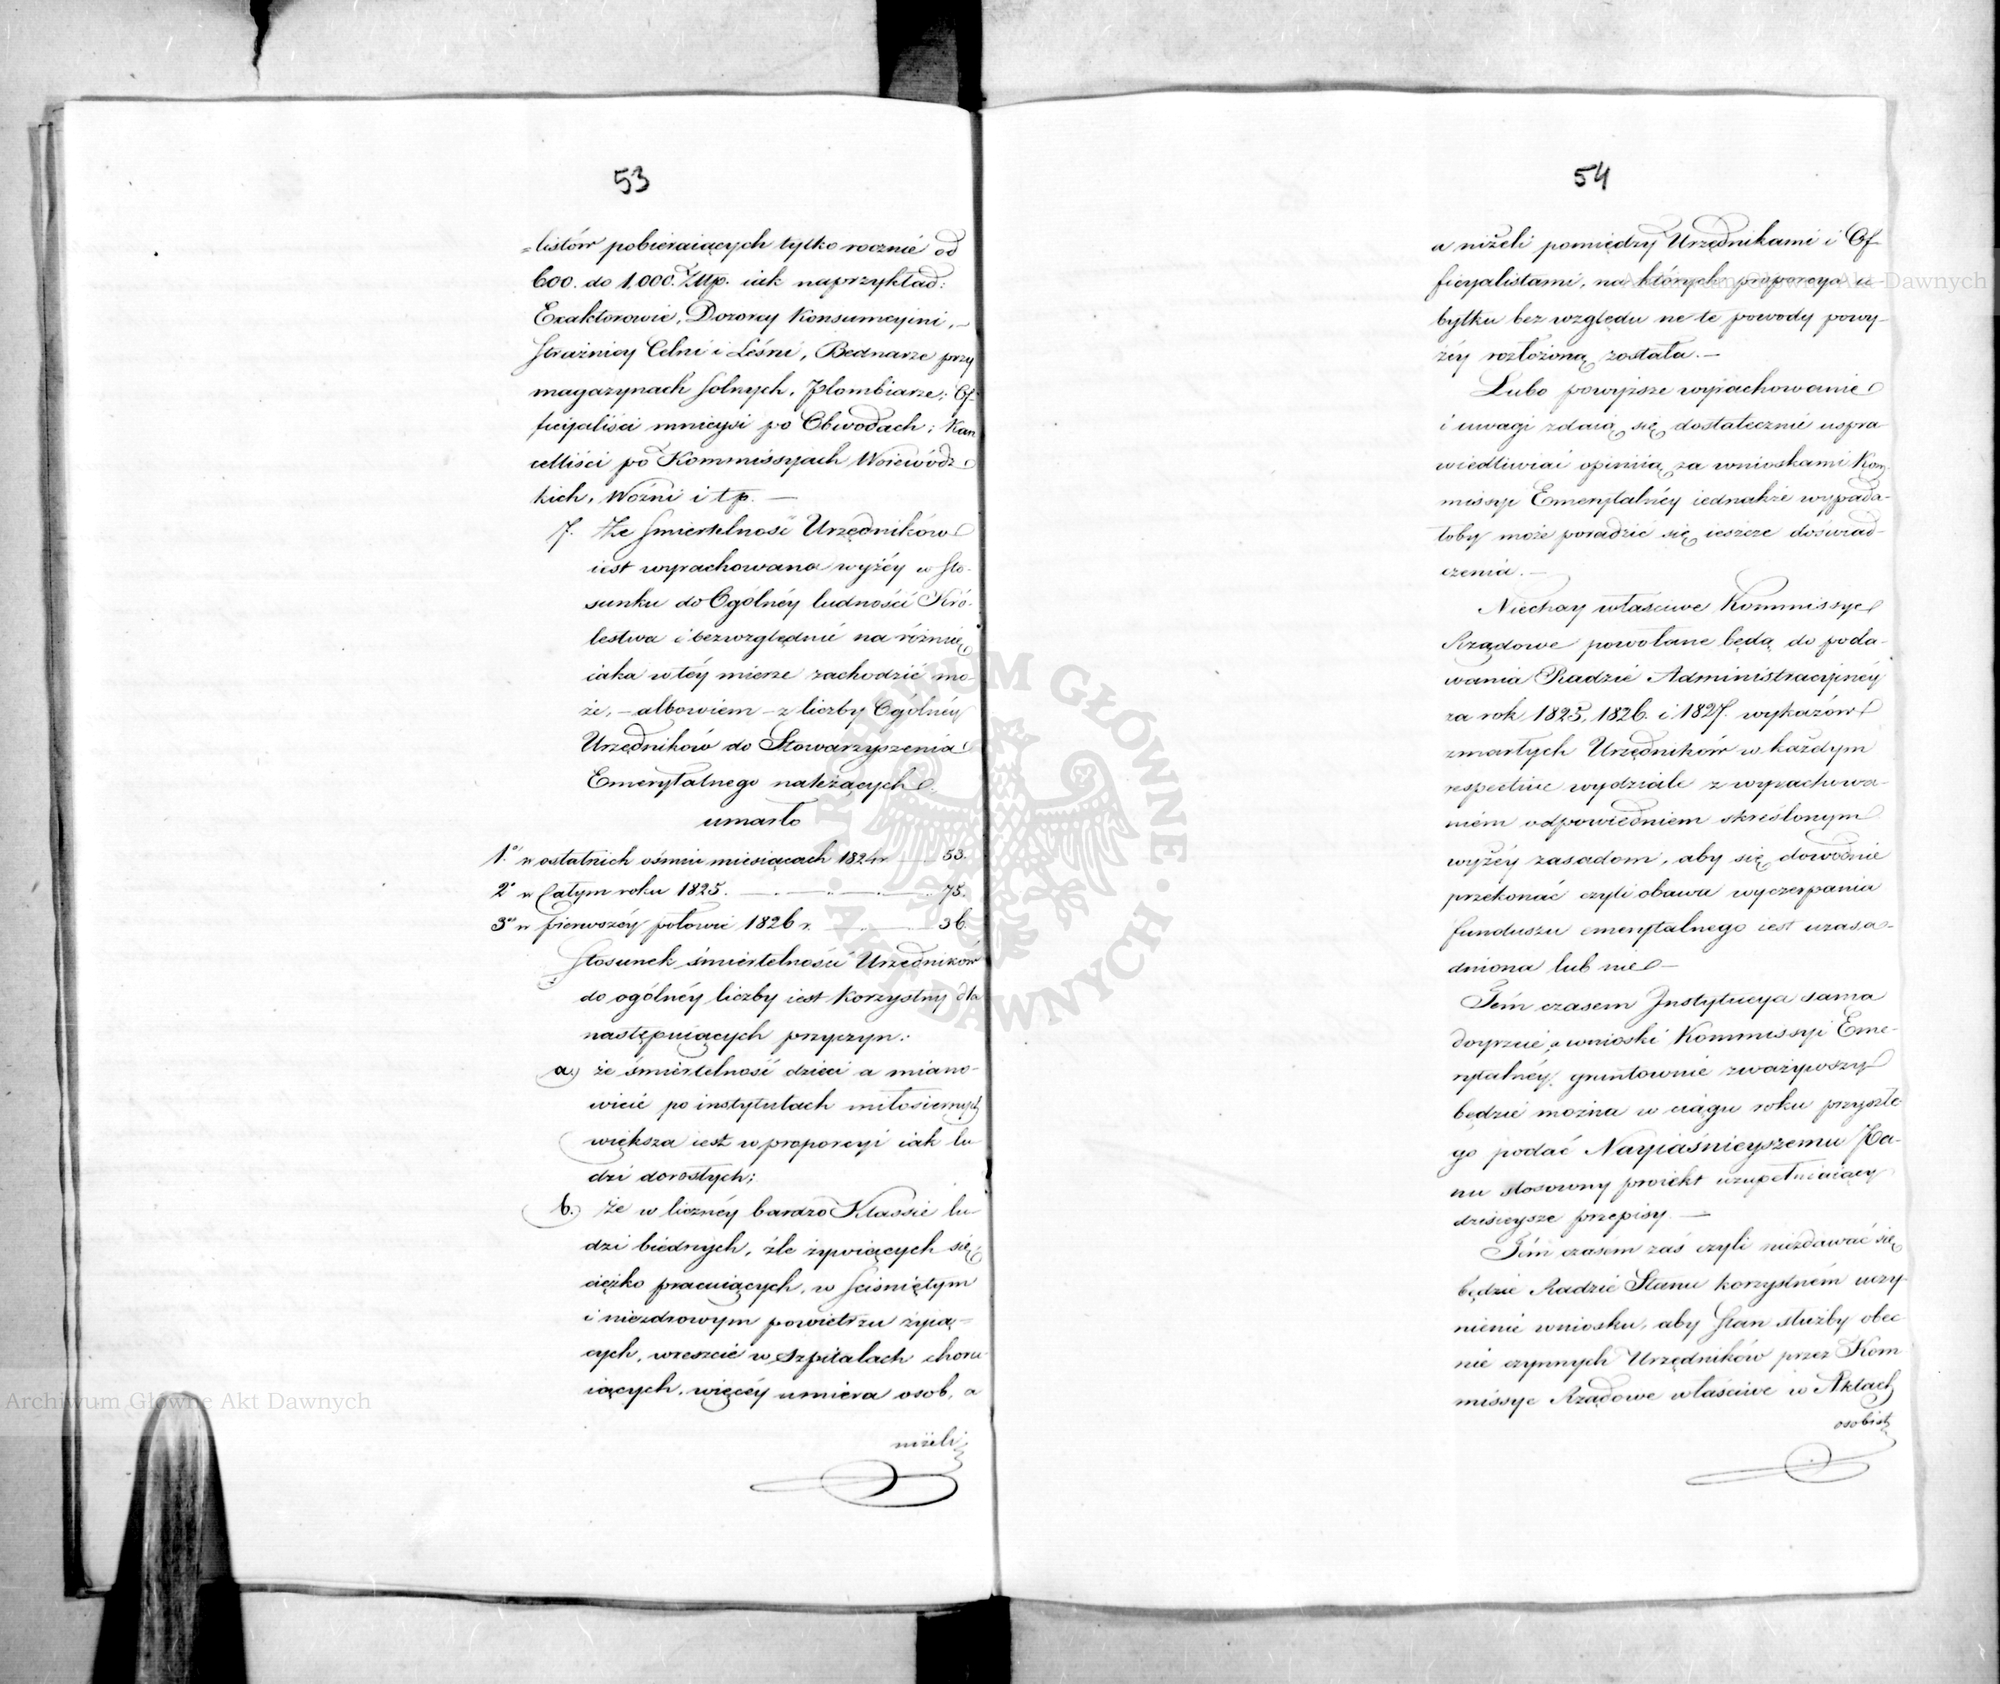 53
=listów pobieraiących tylko rocznie od
600. do 1,000. Złłp. iak naprzykład:
Exaktorowie, Dozorcy Konsumcyini,—
Strażnicy Celni i Leśni, Bednarze przy
magazynach Solnych, Plombiarze; Of-
ficyaliści mnieysi po Obwodach; Kan
celliści po Kommissyach Woiewódz
kich, Woźni i t.p. —
7. Że Smiertelność Urzędników
iest wyrachowana wyżéy w Sto-
sunku do Ogólnéy ludności Kró-
lestwa i bezwzględnie na różnicę
iaka w téy mierze zachodzić mo-
że, — albowiem — z liczby Ogólnéy
Urzędników do Stowarzyszenia
Emerytalnego należących
umarło
1.º w ostatnich ośmiu miesiącach 1824 r. — 53.
2º w Całym roku 1825. — 75.
3º w pierwszéy połowie 1826 r. — 36.
Stosunek śmiertelności Urzędników
do ogólnéy liczby iest Korzystny dla
następuiących przyczyn:
a) że śmiertelność dzieci a miano-
wicie po instytutach miłosiernych
większa iest w proporcyi iak lu-
dzi dorosłych;
b.) Że w licznéy bardzo Klassie lu-
dzi biednych, źle żywiących się,
ciężko pracuiących, w Sciśniętym
i niezdrowym powietrzu żyią=
cych, wreszcie w Szpitalach choru-
iących, więcéy umiera osob, a
niżeli
54
a niżeli pomiędzy Urzędnikami i Of-
ficyalistami, na których proporcya u-
bytku bez względu na te powody powy-
żéy rozłożoną została. —
Lubo powyższe wyrachowanie
i uwagi zdaią się dostatecznie uspra-
wiedliwiać opiniią za wnioskami Kom-
missyi Emerytalnéy iednakże wypada-
łoby może poradzić się ieszcze doświad-
czenia. —
Niechay właściwe Kommissye
Rządowe powołane będą do poda-
wania Radzie Administracyinéy
za rok 1825, 1826. i 1827. wykazów
zmarłych Urzędników w każdym
respective wydziale z wyrachowa-
niem odpowiedniem skreślonym
wyżéy zasadom, aby się dowodnie
przekonać czyli obawa wyczerpania
funduszu emerytalnego iest uzasa-
dniona lub nie —
Tém czasem Instytucya sama
doyrzeie, a wnioski Kommissyi Eme-
rytalnéy, gruntownie zważywszy
będzie można w ciągu roku przyszłe
go podać Nayiaśnieyszemu Pa-
nu stosowny proiekt uzupełniaiący
dzisieysze przepisy. —
Tém czasem zaś czyli niezdawać się
będzie Radzie Stanu korzystném uczy-
nienie wniosku, aby Stan służby obec
nie czynnych Urzędników przez Kom
missye Rządowe właściwe w Aktach
osobist
Archiwum Główne Akt Dawnych
Archiwum Główne Akt Dawnych
ARCHIWUM GŁÓWNE · AKT DAWNYCH ·